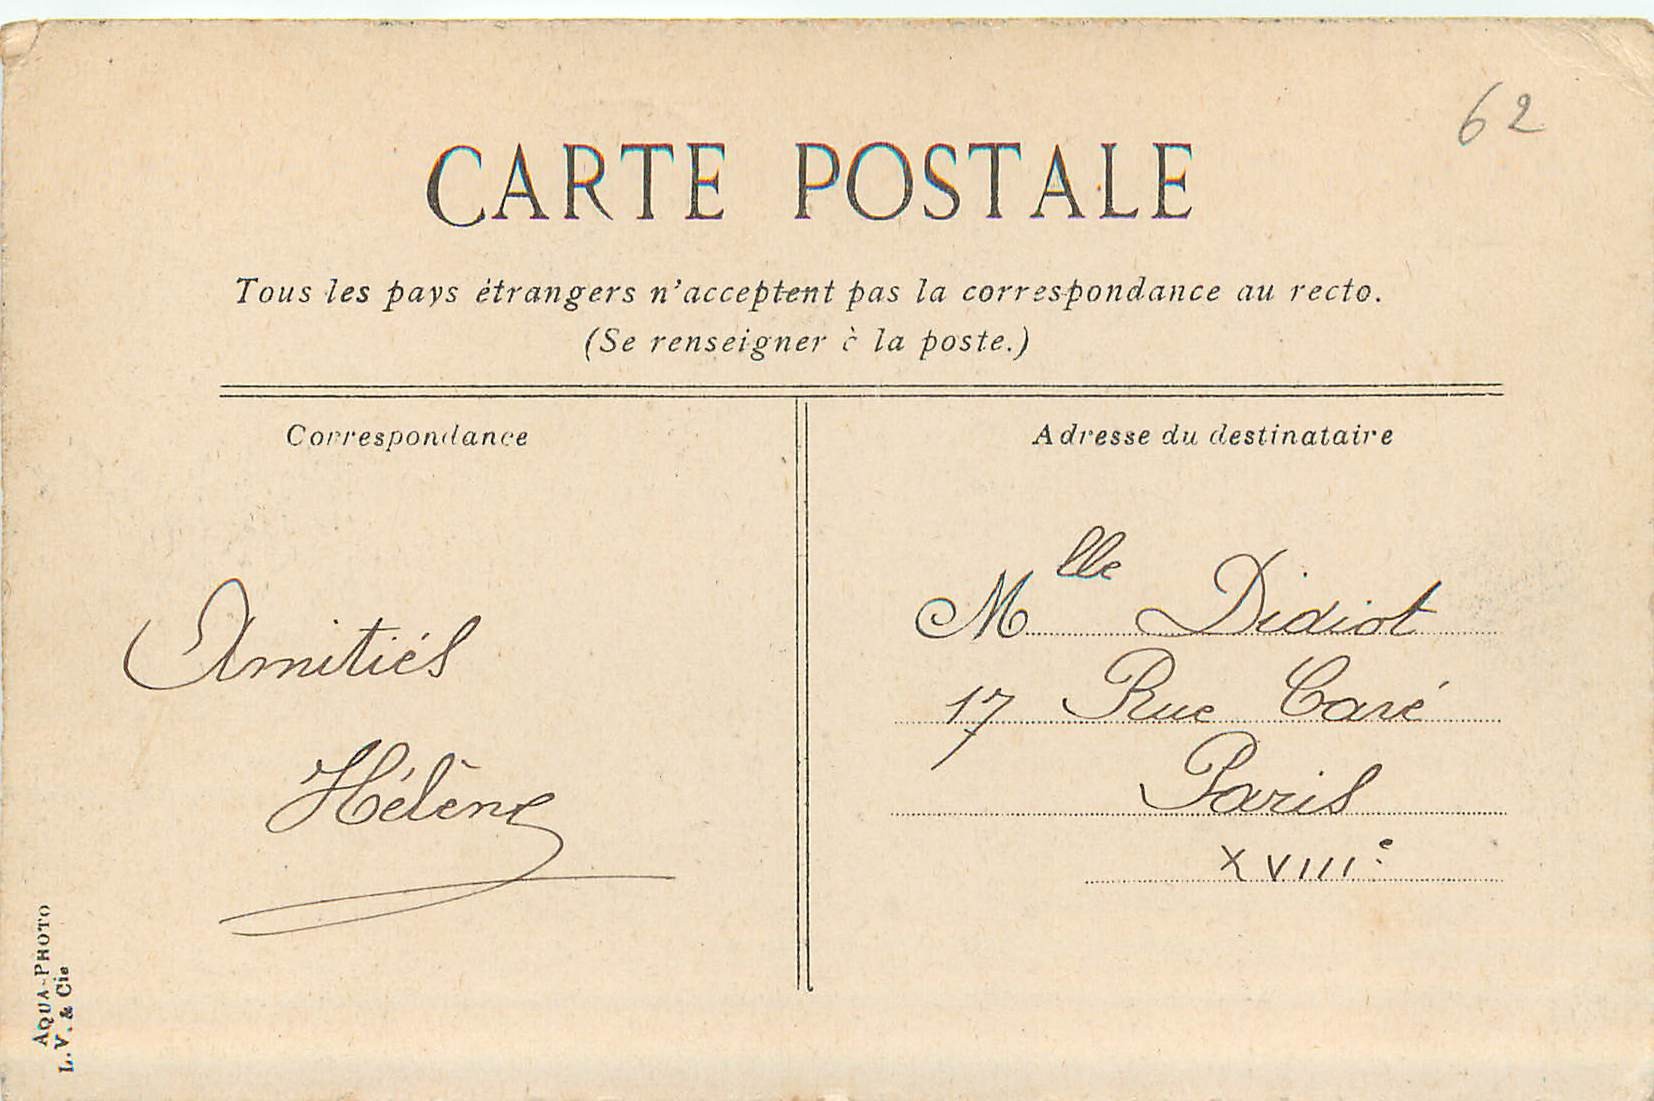 62
CARTE POSTALE
Tous les pays étrangers n'acceptent pas la correspondance au recto.
(Se renseigner à la poste.)
Correspondance
Adresse du destinataire
Amitiés
Hélène
Mlle Didiot
17 Rue Cavé
Paris
XVIIIe
AQUA-PHOTO
L. V. & Cie